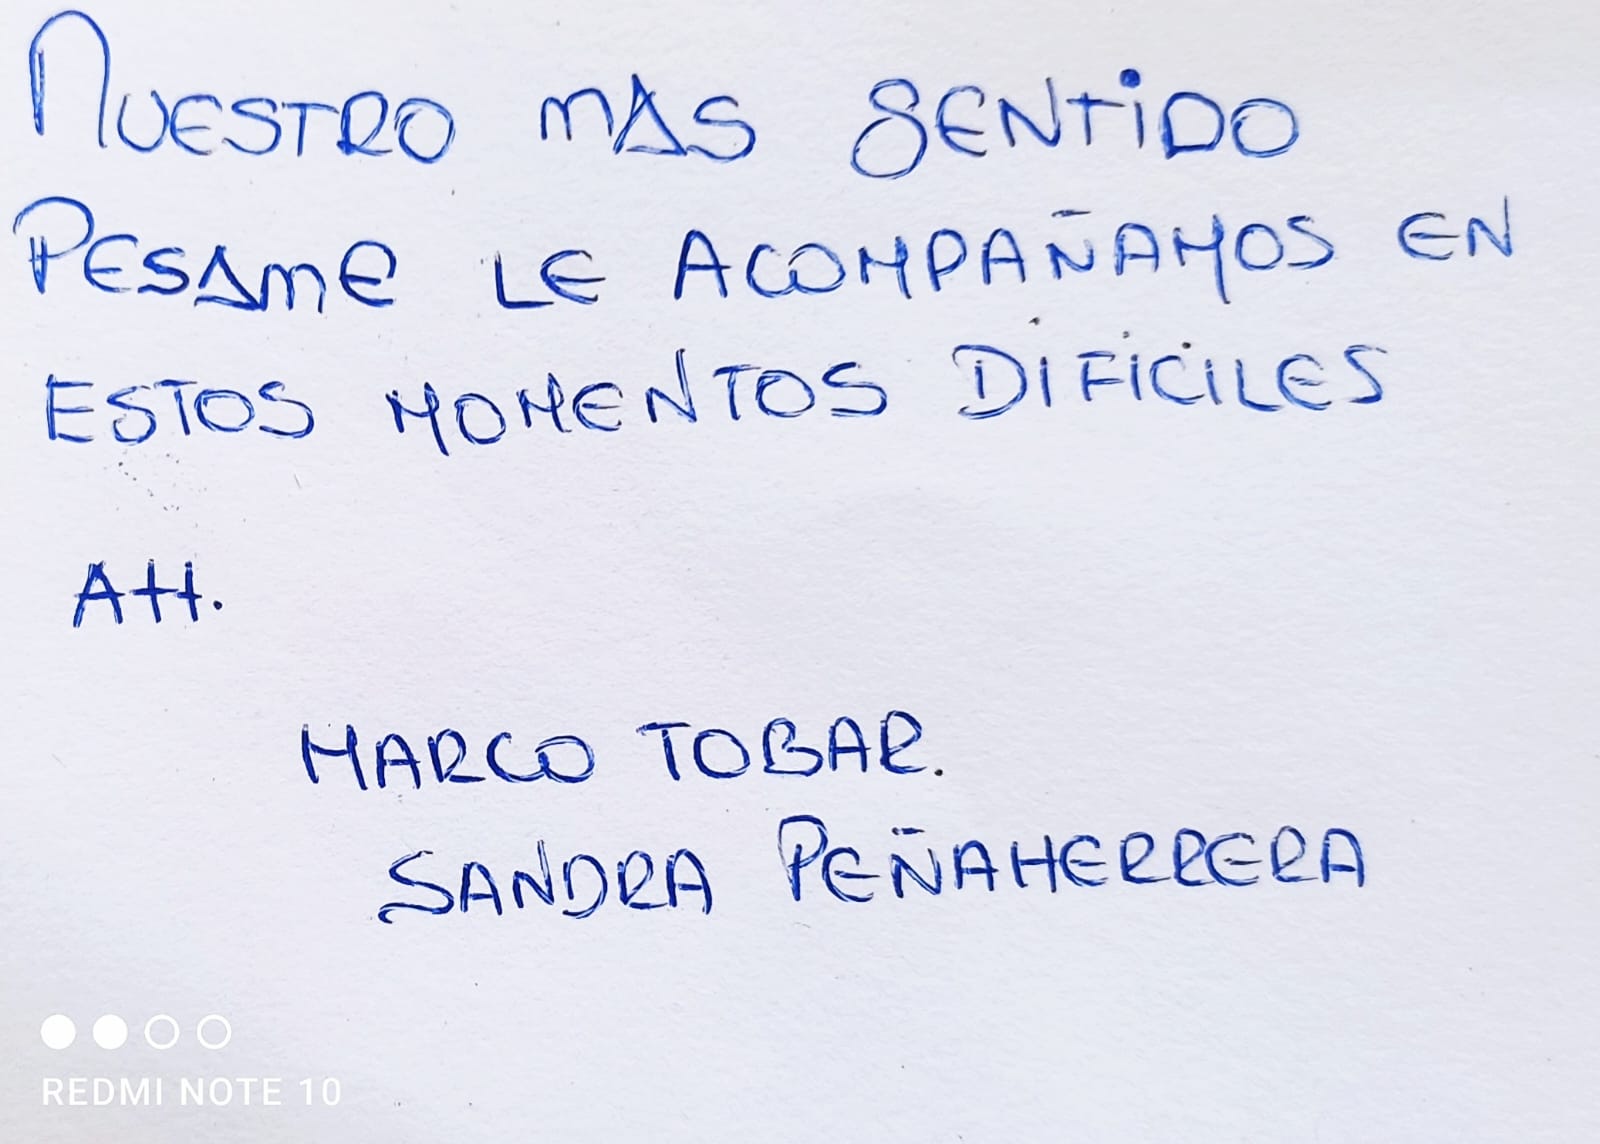 NUESTRO MAS SENTIDO
PESAME LE ACOMPAÑAMOS EN
ESTOS MOMENTOS DIFICILES
Att.
MARCO TOBAR.
SANDRA PEÑAHERRERA
REDMI NOTE 10